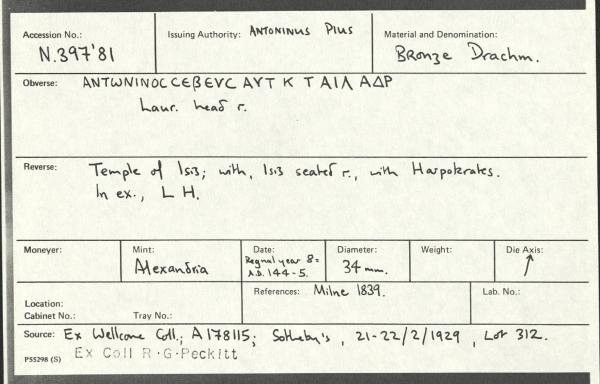 Accession No.: N.397'81
Issuing Authority: ANTONINUS PIUS
Material and Denomination: Bronze Drachm.
Obverse: ΑΝΤWΝΙΝΟC CΕΒΕVC ΑΥΤ Κ Τ ΑΙΛ ΑΔΡ
Laur. head r.
Reverse: Temple of Isis; with, Isis seated r., with Harpokrates.
In ex., L H.
Moneyer:
Mint: Alexandria
Date: Regnal year 8 = A.D. 144-5.
Diameter: 34 mm.
Weight:
Die Axis: ↗
Location:
Cabinet No.: Tray No.:
References: Milne 1839.
Lab. No.:
Source: Ex Wellcome Coll.; A178115; Sotheby's, 21-22/2/1929, Lot 312.
P55298 (S) Ex Coll R.G.Peckitt